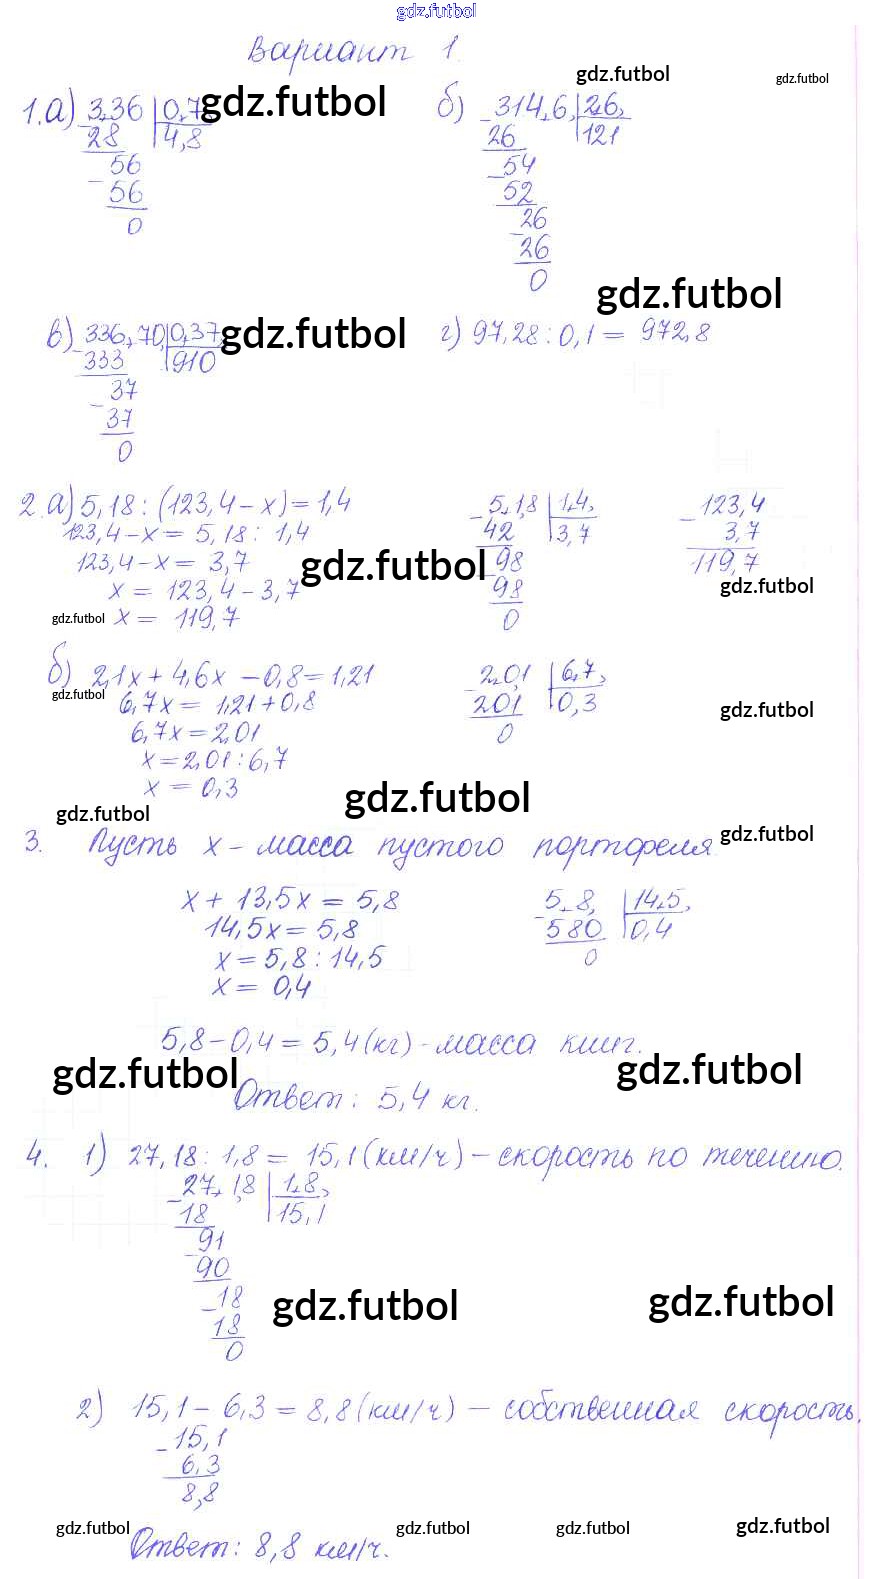 gdz.futbol
Вариант 1.
gdz.futbol
gdz.futbol
1. а) 3,36 | 0,7 gdz.futbol б) 314,6, | 2,6,
28 4,8 26 121
56 54
56 52
0 26
26
0
gdz.futbol
в) 336,70 | 0,37 gdz.futbol г) 97,28 : 0,1 = 972,8
333 910
37
37
0
2. а) 5,18 : (123,4 - x) = 1,4 5,1,8 | 1,4, 123,4
123,4 - x = 5,18 : 1,4 42 3,7 3,7
123,4 - x = 3,7 gdz.futbol 98 119,7
x = 123,4 - 3,7 98 gdz.futbol
gdz.futbol x = 119,7 0
б) 2,1x + 4,6x - 0,8 = 1,21 2,0,1 | 6,7,
gdz.futbol 6,7x = 1,21 + 0,8 201 0,3 gdz.futbol
6,7x = 2,01 0
x = 2,01 : 6,7
x = 0,3 gdz.futbol
gdz.futbol
3. Пусть x - масса пустого портфеля. gdz.futbol
x + 13,5x = 5,8 5,8, | 14,5,
14,5x = 5,8 580 0,4
x = 5,8 : 14,5 0
x = 0,4
5,8 - 0,4 = 5,4 (кг) - масса книг.
gdz.futbol gdz.futbol
Ответ: 5,4 кг.
4. 1) 27,18 : 1,8 = 15,1 (км/ч) - скорость по течению.
27,1,8 | 1,8,
18 15,1
91
90
18 gdz.futbol gdz.futbol
18
0
2) 15,1 - 6,3 = 8,8 (км/ч) - собственная скорость.
15,1
6,3
8,8
gdz.futbol gdz.futbol gdz.futbol gdz.futbol
Ответ: 8,8 км/ч.